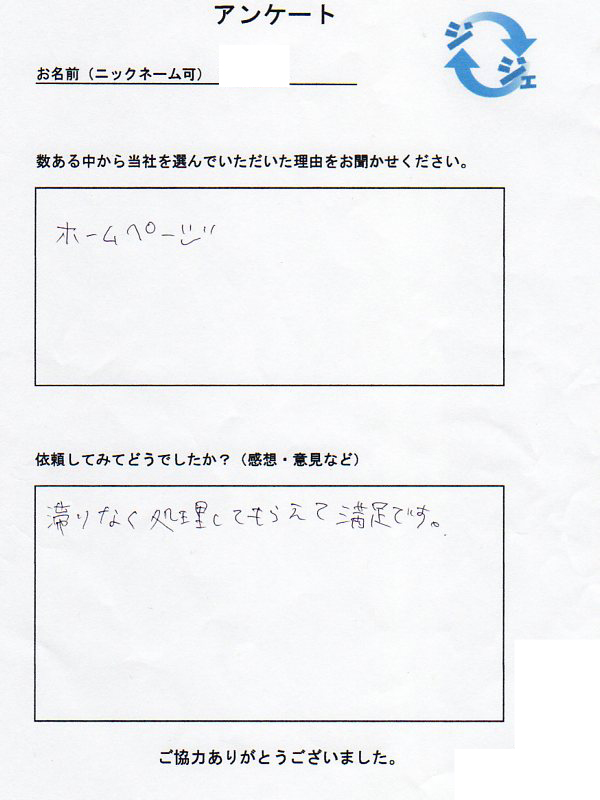 アンケート
ジジェ
お名前（ニックネーム可）
数ある中から当社を選んでいただいた理由をお聞かせください。
ホームページ
依頼してみてどうでしたか？（感想・意見など）
滞りなく処理してもらえて満足です。
ご協力ありがとうございました。